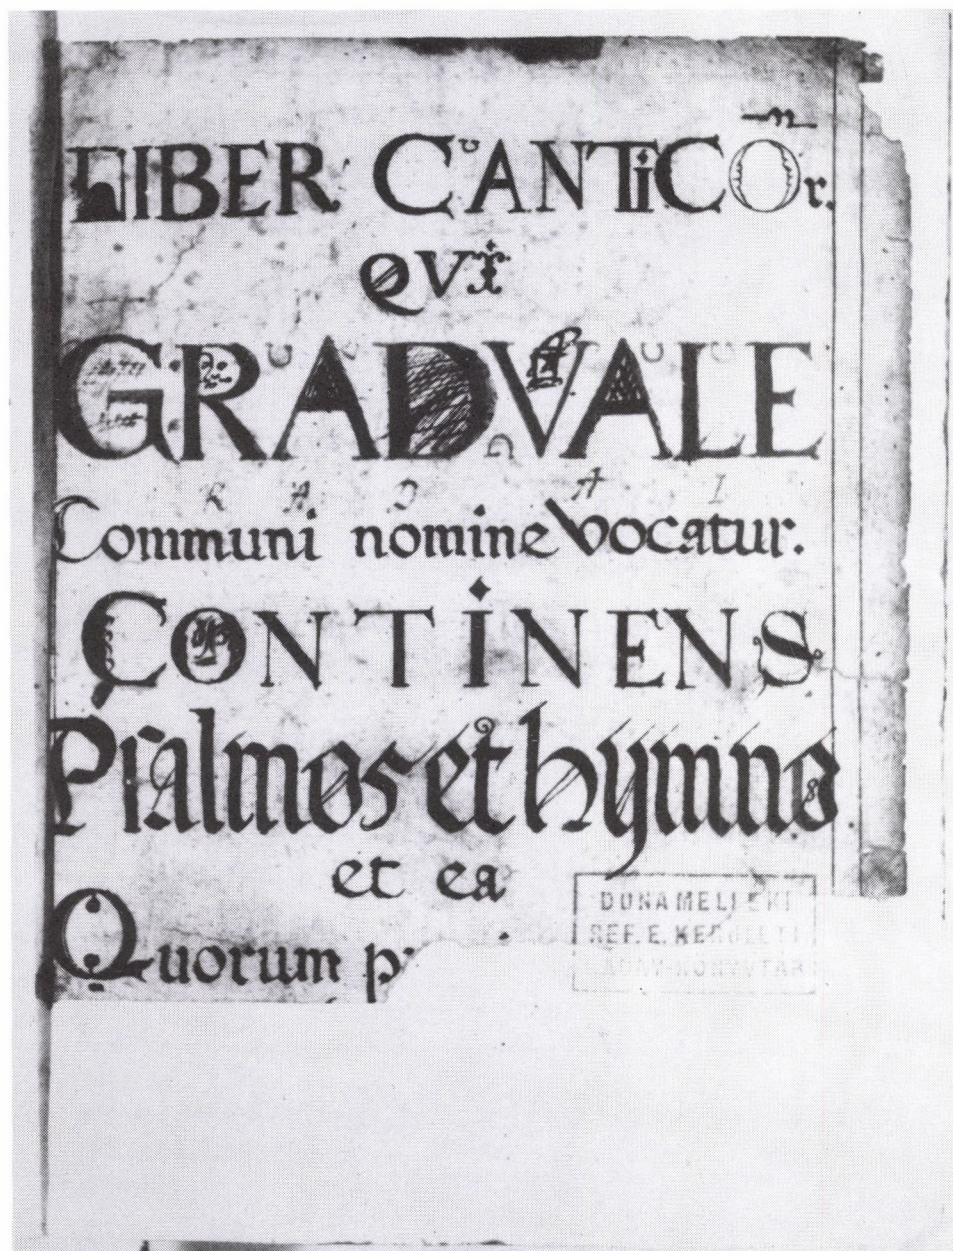 LIBER CANTICOr.
QVI
GRADVALE
R A D A I
Communi nomine vocatur.
CONTINENS
Psalmos et hymnos
et ea
Quorum p
DUNAMELLEKI
REF. E. KERÜLETI
RADAY-KÖNYVTÁR